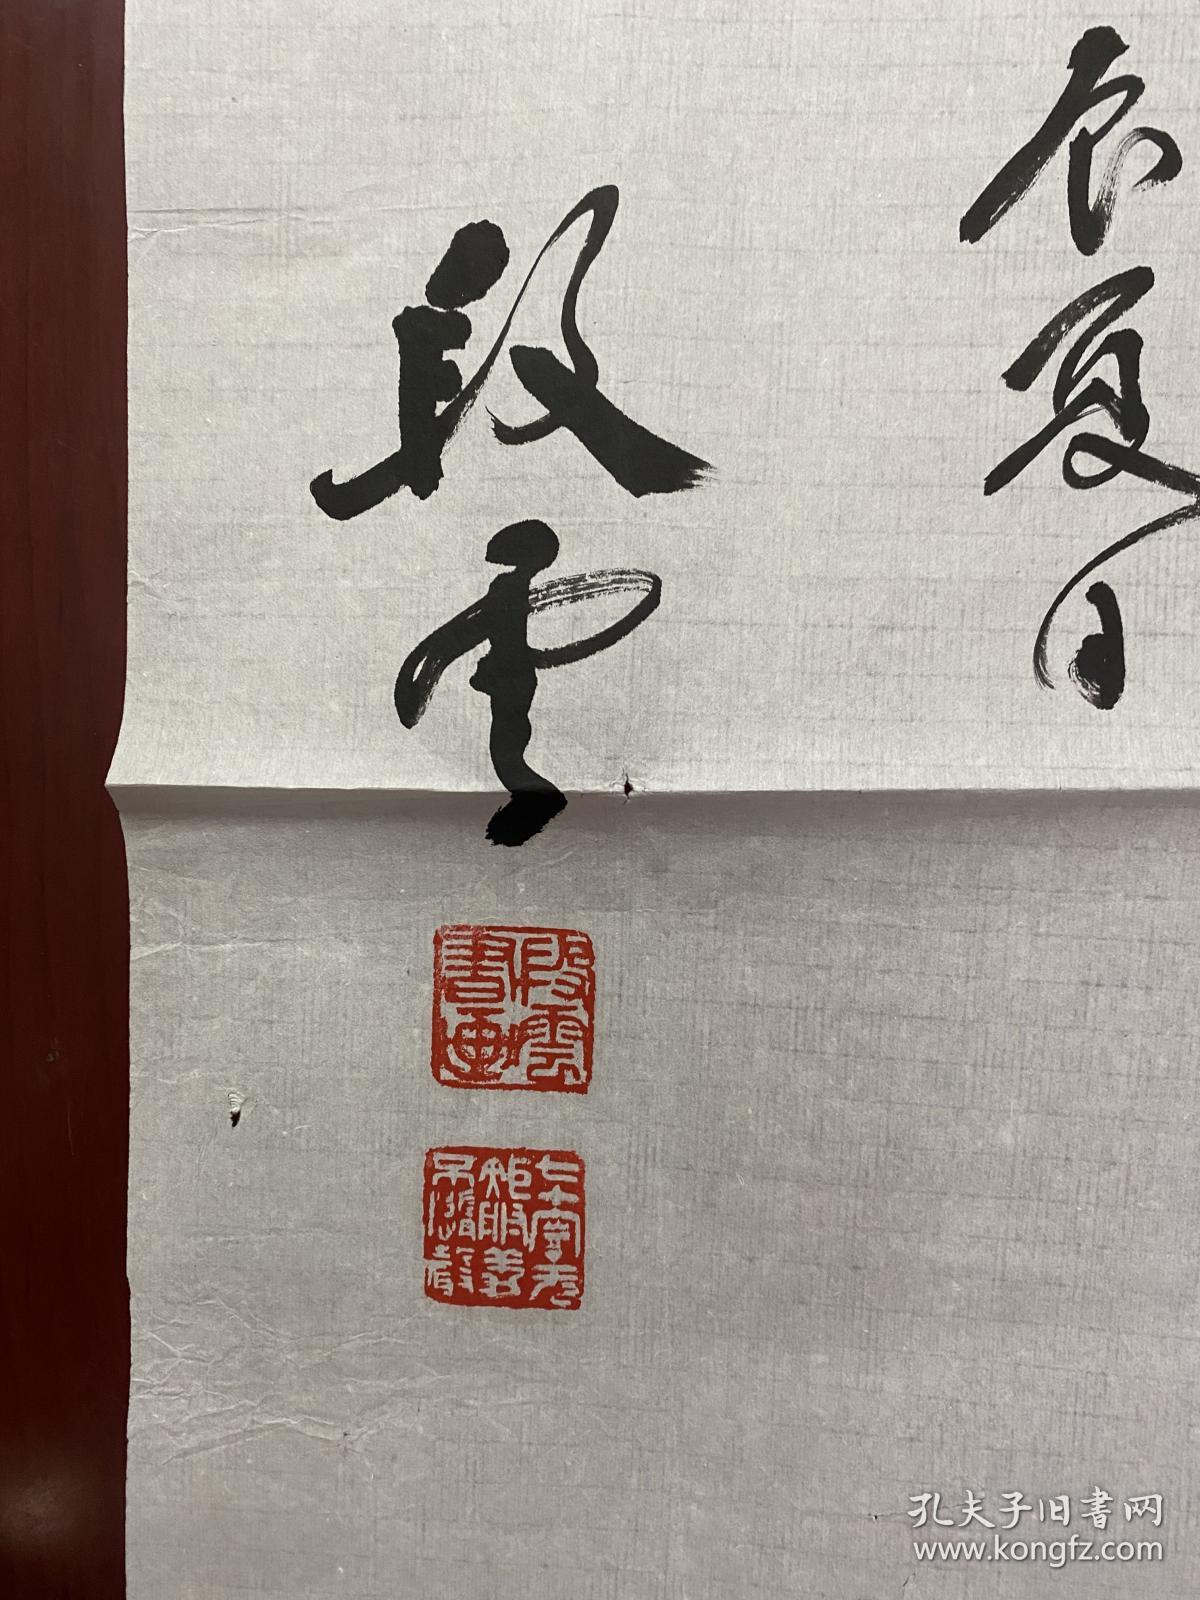 辰夏日
段雲
段雲
書画
孔夫子旧書网
www.kongfz.com